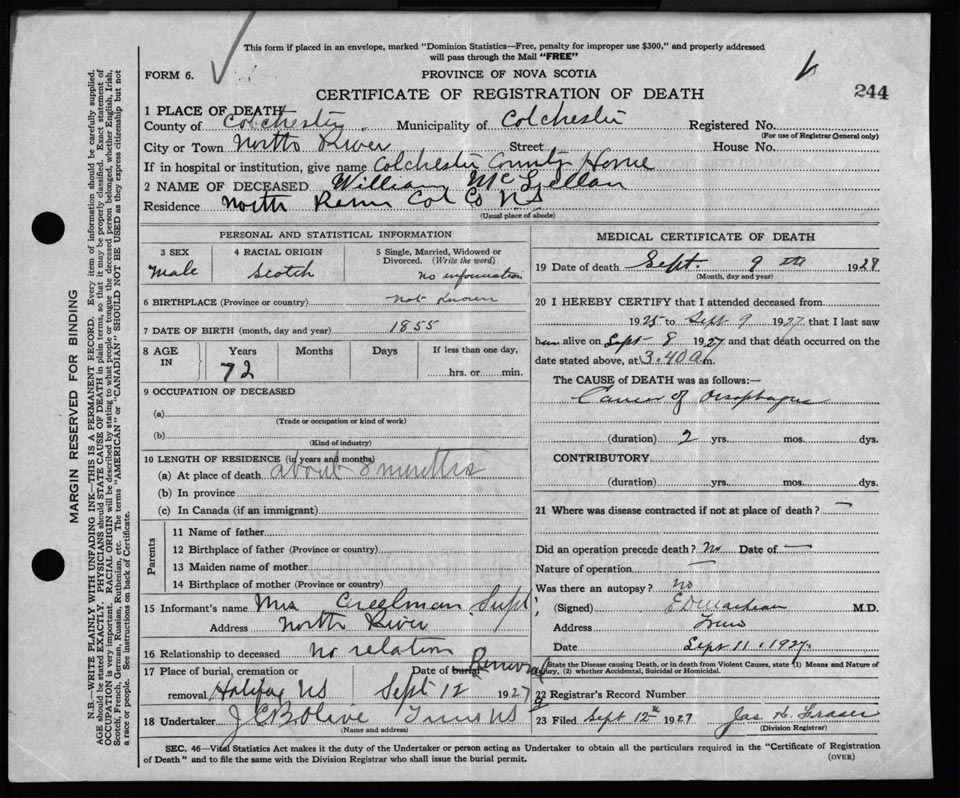 This form if placed in an envelope, marked "Dominion Statistics—Free, penalty for improper use $300," and properly addressed
will pass through the Mail "FREE"
FORM 6.
PROVINCE OF NOVA SCOTIA
CERTIFICATE OF REGISTRATION OF DEATH
244
1 PLACE OF DEATH
County of Colchester Municipality of Colchester Registered No.
(For use of Registrar General only)
City or Town North River Street House No.
If in hospital or institution, give name Colchester County Home
2 NAME OF DECEASED William McLellan
Residence North River Col Co NS
(Usual place of abode)
PERSONAL AND STATISTICAL INFORMATION
3 SEX
Male
4 RACIAL ORIGIN
Scotch
5 Single, Married, Widowed or
Divorced. (Write the word)
no information
6 BIRTHPLACE (Province or country) not known
7 DATE OF BIRTH (month, day and year) 1855
8 AGE IN
Years Months Days If less than one day,
72
hrs. or min.
9 OCCUPATION OF DECEASED
(a)
(Trade or occupation or kind of work)
(b)
(Kind of industry)
10 LENGTH OF RESIDENCE (in years and months)
(a) At place of death about 8 months
(b) In province
(c) In Canada (if an immigrant)
Parents
11 Name of father
12 Birthplace of father (Province or country)
13 Maiden name of mother
14 Birthplace of mother (Province or country)
15 Informant's name Mrs Creelman Supt
Address North River
16 Relationship to deceased no relation
17 Place of burial, cremation or Date of burial Removal
removal Halifax NS Sept 12 1927
18 Undertaker J C B Olive Truro NS
(Name and address)
MEDICAL CERTIFICATE OF DEATH
19 Date of death Sept. 9th 192
(Month, day and year)
20 I HEREBY CERTIFY that I attended deceased from
1925 to Sept 9 1927 that I last saw
him alive on Sept 8 1927 and that death occurred on the
date stated above, at 3.40 a m.
The CAUSE of DEATH was as follows:—
Cancer of Oesophagus
(duration) 2 yrs. mos. dys.
CONTRIBUTORY
(duration) yrs. mos. dys.
21 Where was disease contracted if not at place of death? —
Did an operation precede death? No Date of —
Nature of operation —
Was there an autopsy? no
(Signed) M.D.
Address Truro
Date Sept 11, 1927
State the Disease causing Death, or in death from Violent Causes, state (1) Means and Nature of
Injury, (2) whether Accidental, Suicidal or Homicidal.
22 Registrar's Record Number
23 Filed Sept 12th 1927 Jas H. Fraser
(Division Registrar)
SEC. 46—Vital Statistics Act makes it the duty of the Undertaker or person acting as Undertaker to obtain all the particulars required in the "Certificate of Registration
of Death" and to file the same with the Division Registrar who shall issue the burial permit.
(OVER)
MARGIN RESERVED FOR BINDING
N.B.—WRITE PLAINLY WITH UNFADING INK—THIS IS A PERMANENT RECORD. Every item of information should be carefully supplied.
AGE should be stated EXACTLY. PHYSICIANS should STATE CAUSE OF DEATH in plain terms, so that it may be properly classified. Exact statement of
OCCUPATION is very important. RACIAL ORIGIN will be described by stating to what people or tongue the deceased person belonged, whether English, Irish,
Scotch, French, German, Russian, Ruthenian, etc. The terms "AMERICAN" or "CANADIAN" SHOULD NOT BE USED as they express citizenship but not
a race or people. See instructions on back of Certificate.